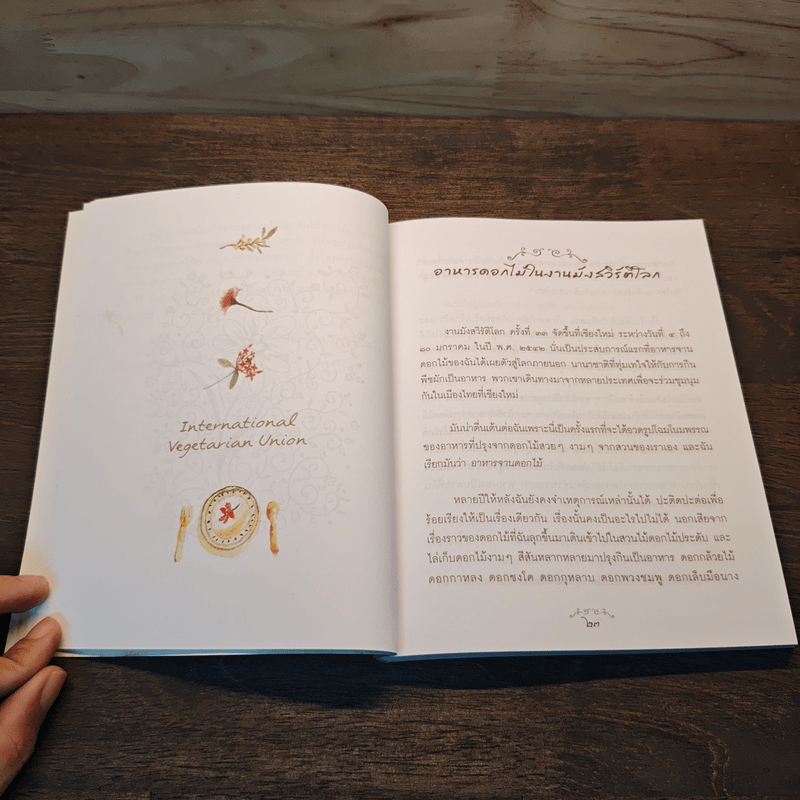 International
Vegetarian Union
อาหารดอกไม้ในงานมังสวิรัติโลก
งานมังสวิรัติโลก ครั้งที่ ๓๓ จัดขึ้นที่เชียงใหม่ ระหว่างวันที่ ๔ ถึง
๑๐ มกราคม ในปี พ.ศ. ๒๕๔๒ นั่นเป็นประสบการณ์แรกที่อาหารจาน
ดอกไม้ของฉันได้เผยตัวสู่โลกภายนอก นานาชาติที่ทุ่มเทใจให้กับการกิน
พืชผักเป็นอาหาร พวกเขาเดินทางมาจากหลายประเทศเพื่อจะร่วมชุมนุม
กันในเมืองไทยที่เชียงใหม่
มันน่าตื่นเต้นต่อฉันเพราะนี่เป็นครั้งแรกที่จะได้อวดรูปโฉมโนมพรรณ
ของอาหารที่ปรุงจากดอกไม้สวยๆ งามๆ จากสวนของเราเอง และฉัน
เรียกมันว่า อาหารจานดอกไม้
หลายปีให้หลังฉันยังคงจำเหตุการณ์เหล่านั้นได้ ปะติดปะต่อเพื่อ
ร้อยเรียงให้เป็นเรื่องเดียวกัน เรื่องนั้นคงเป็นอะไรไปไม่ได้ นอกเสียจาก
เรื่องราวของดอกไม้ที่ฉันลุกขึ้นมาเดินเข้าไปในสวนไม้ดอกไม้ประดับ และ
ไล่เก็บดอกไม้งามๆ สีสันหลากหลายมาปรุงกินเป็นอาหาร ดอกกล้วยไม้
ดอกกาหลง ดอกชงโค ดอกกุหลาบ ดอกพวงชมพู ดอกเล็บมือนาง
๒๓